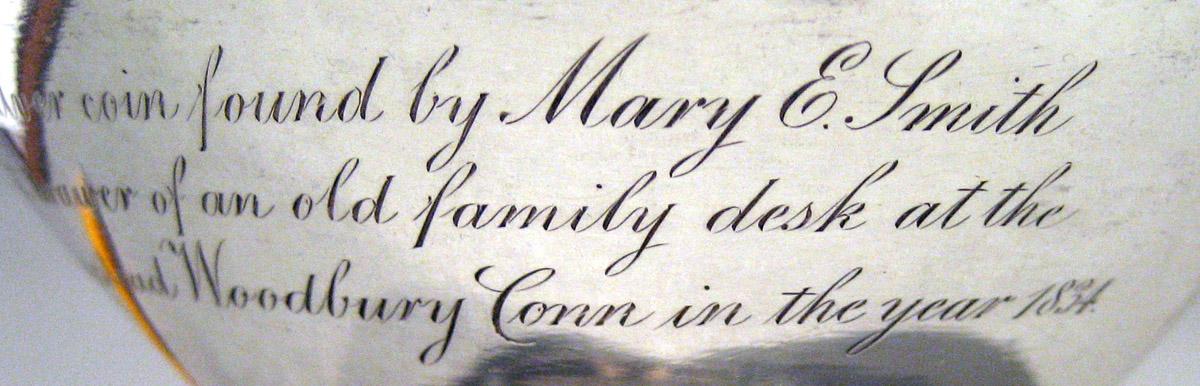 coin found by Mary E. Smith
of an old family desk at the
Woodbury Conn in the year 1834.